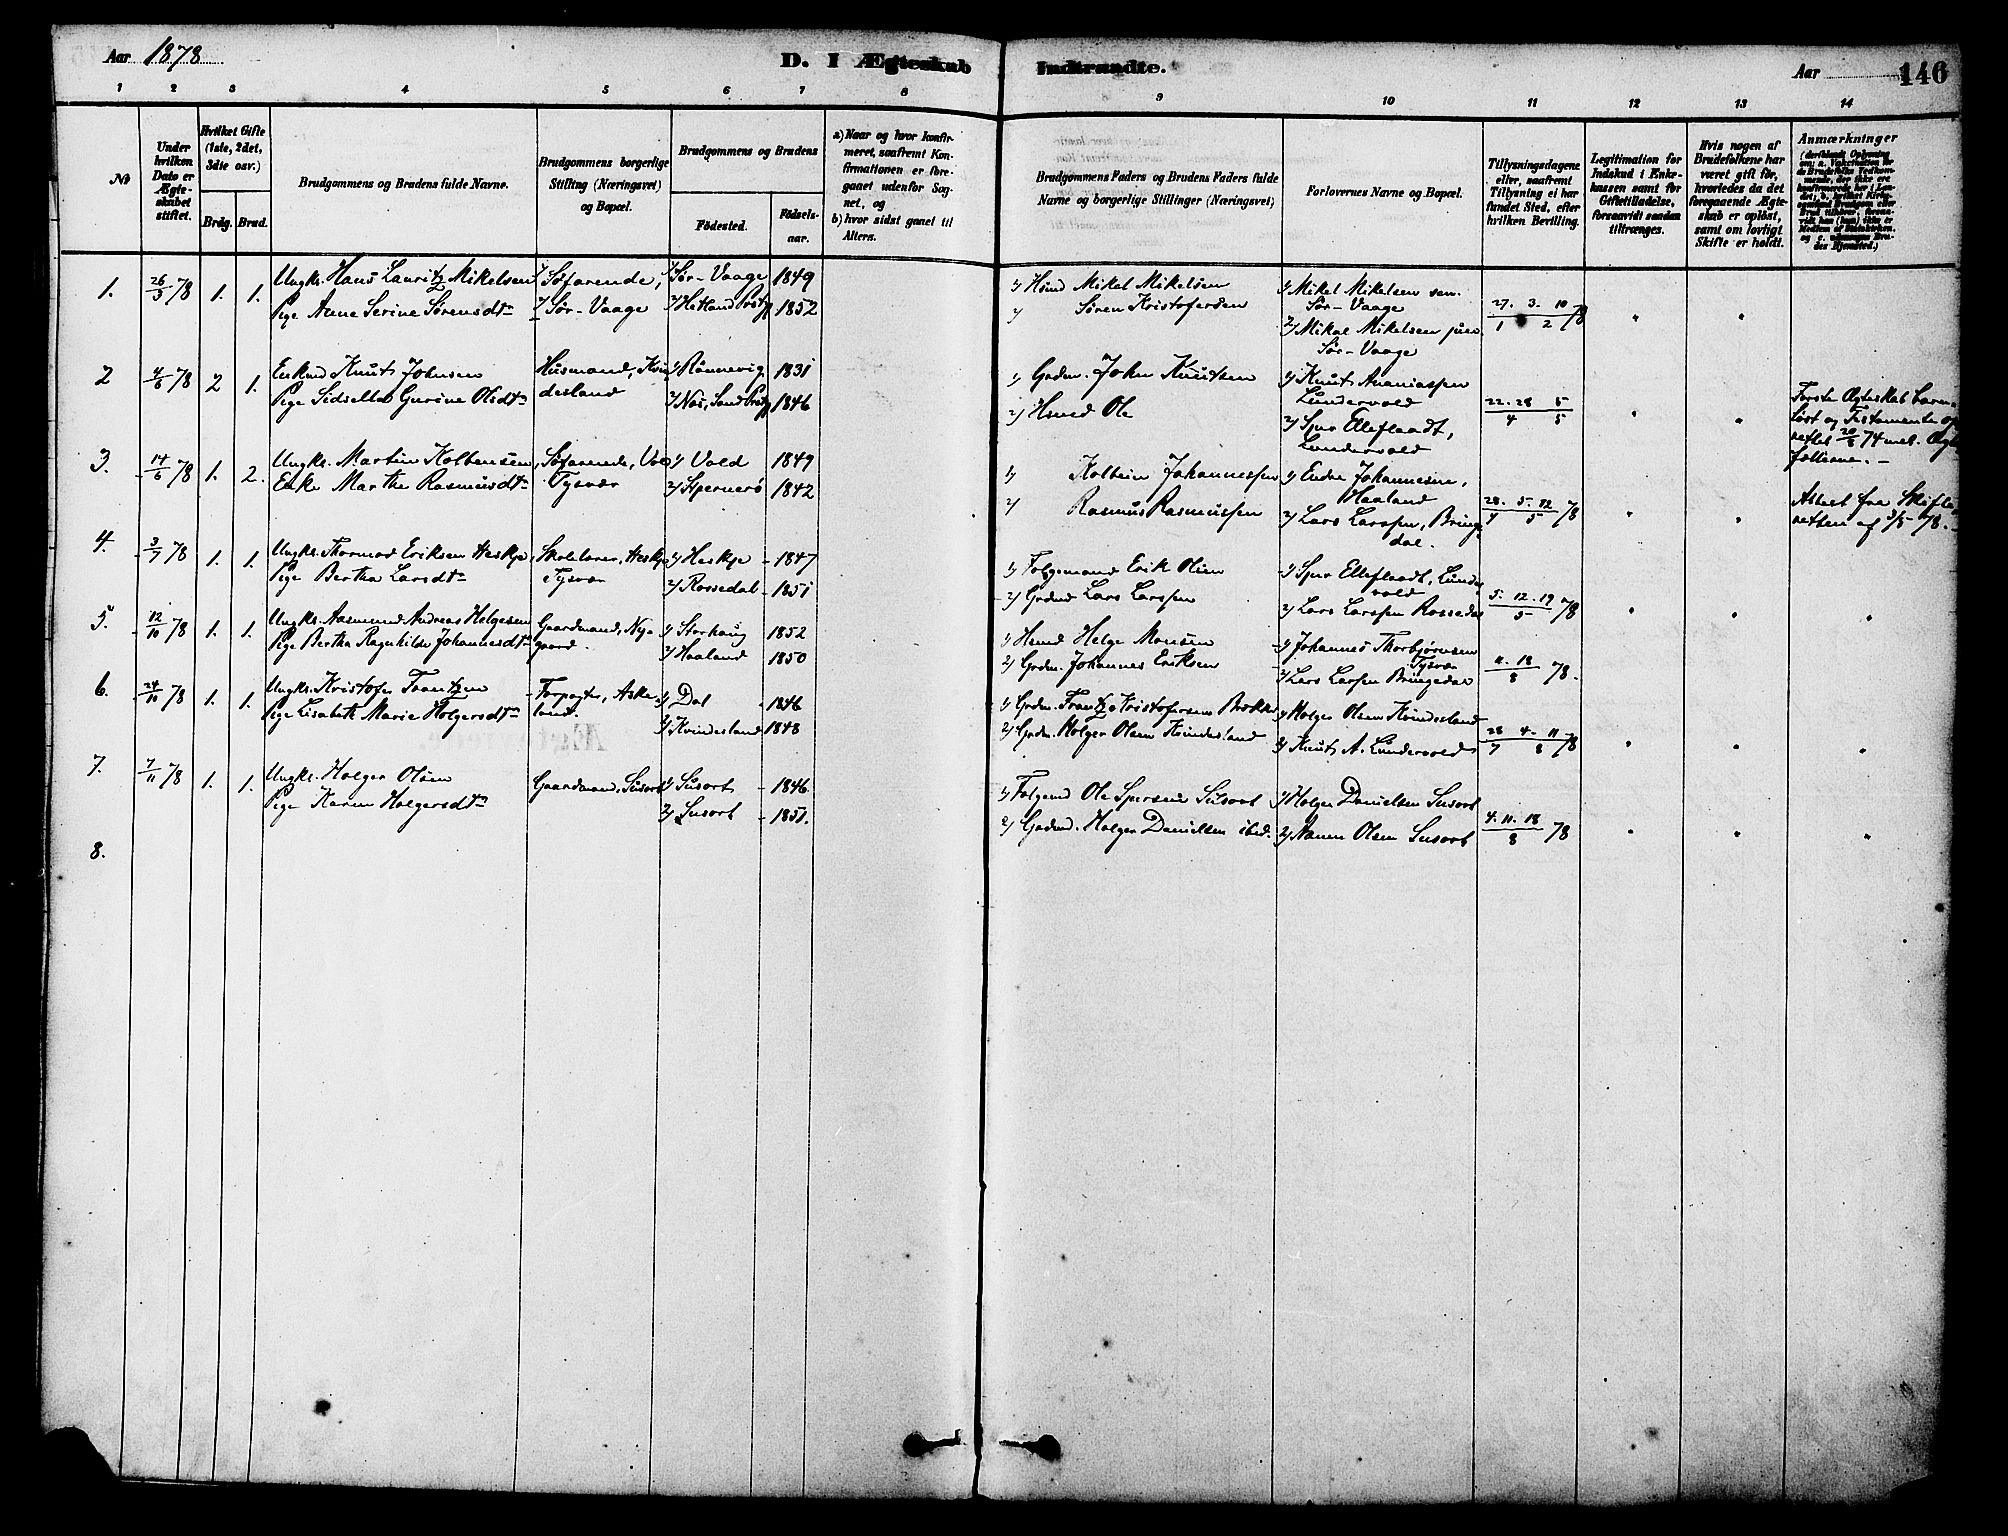 Aar 1878
D. I Ægteskab Indtraadte.
Aar 146
1 2 3 4 5 6 7 8 9 10 11 12 13 14
No
Under hvilken Dato er Ægteskabet stiftet.
Hvilket Gifte (1ste, 2det, 3die osv.)
Brdg. Brud.
Brudgommens og Brudens fulde Navne.
Brudgommens borgerlige Stilling (Næringsvei) og Bopæl.
Brudgommens og Brudens
Födested. Födselsaar.
a) Naar og hvor konfirmeret, saafremt Konfirmationen er foregaaet udenfor Sognet, og
b) hvor sidst gaaet til Alters.
Brudgommens Faders og Brudens Faders fulde Navne og borgerlige Stillinger (Næringsvei)
Forlovernes Navne og Bopæl.
Tillysningsdagene eller, saafremt Tillysning ei har fundet Sted, efter hvilken Bevilling.
Legitimation for Indskud i Enkekassen samt for Giftetilladelse, forsaavidt saadan tiltrænges.
Hvis nogen af Brudefolkene har været gift för, hvorledes da det foregaaende Ægteskab er oplöst, samt om lovligt Skifte er holdt.
Anmærkninger
1. 26/5 78 1. 1.
Ungkr. Hans Lauritz Mikelsen
Pige Anne Serine Sörensdtr
Söfarende,
Sör-Vaage
1) Sör-Vaage 1849
2) Hetland Prstgj 1852
1) Hsmd Mikel Mikelsen
2) Sören Kristofersen
1) Mikel Mikelsen sen.
Sör-Vaage
2) Mikal Mikelsen jun
Sör-Vaage
27. 3. 10
1 2 78
2 4/6 78 2 1.
Enkmd Knut Johnsen
Pige Sidselle Gurine Olsdtr
Husmand, Kvindesland
1) Rönnevig 1831
2) Næs, Sand Prstgj 1846
1) Grdm. John Knutsen
2) Hsmd Ole
1) Knut Ananiassen
Lundervold
2) Sjur Elleflaadt,
Lundervold
22. 28 5
4 5
Første Ægteskab barnløst og Testamente oprettet 20/8 74 mel. Ægtefolkene. -
3. 14/6 78 1. 2.
Ungkr. Martin Kolbensen
Enke Marthe Rasmusdtr
Söfarende, Vold
Tysvær
1) Vold 1849
2) Stjernerö 1842
1) Kolbein Johannessen
2) Rasmus Rasmussen
1) Endre Johannesen,
Haaland
2) Lars Larssen, Bringedal.
28. 5. 12
4 5 78
Attest fra Skifteretten af 3/5 78.
4. 3/7 78 1. 1.
Ungkr. Thormod Eriksen Heskje
Pige Bertha Larsdtr
Skolelærer, Heskje
Tysvær
1) Heskje 1847
2) Rossedal 1851
1) Folgemand Erik Olsen
2) Grdmd Lars Larssen
1) Sjur Elleflaadt, Lundevold
2) Lars Larssen Rossedal
5. 12. 19
5 78
5. 12/10 78 1. 1.
Ungkr. Aasmund Andreas Helgesen
Pige Bertha Ragnhilde Johannesdtr
Gaardmand, Nygaard.
1) Storhaug 1852
2) Haaland 1850
1) Hsmd Helge Monsen
2) Grdm. Johannes Eriksen
1) Johannes Thorbjörnsen
Tysvær
2) Lars Larsen Bringedal
11. 18
8 78.
6. 24/10 78 1. 1.
Ungkr. Kristofer Frantzen
Pige Lisabeth Marie Holgersdtr
Forpagter, Askeland.
1) Dal 1846
2) Kvindesland 1848
1) Grdm. Frantz Kristofersen Brekke
2) Grdm. Holger Olsen Kvindesland
1) Holger Olsen Kvindesland
2) Knut A. Lundervold
28 4. 11
7 8 78
7. 7/11 78 1. 1.
Ungkr. Holger Olsen
Pige Karen Holgersdtr
Gaardmand, Susort
1) Susort 1846
2) Susort 1851.
1) Folgemd Ole Sjursen Susort
2) Grdmd. Holger Danielsen ibid.
1) Holger Danielsen Susort
2) Olsen Susort
4. 11. 18
8 78
8.